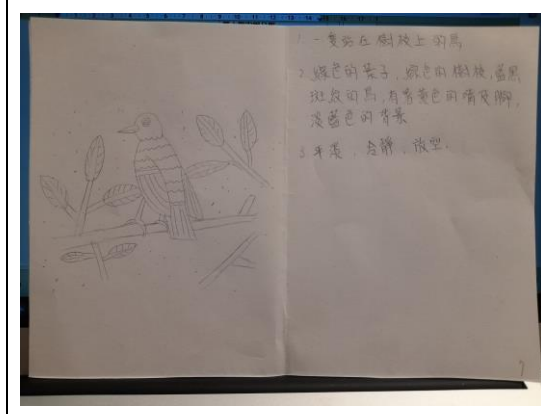 1. 一隻站在樹枝上的鳥
2. 綠色的葉子，綠色的樹枝，藍黑
斑紋的鳥，有黃色的嘴及腳，
淡藍色的背景
3. 平淡、冷靜、